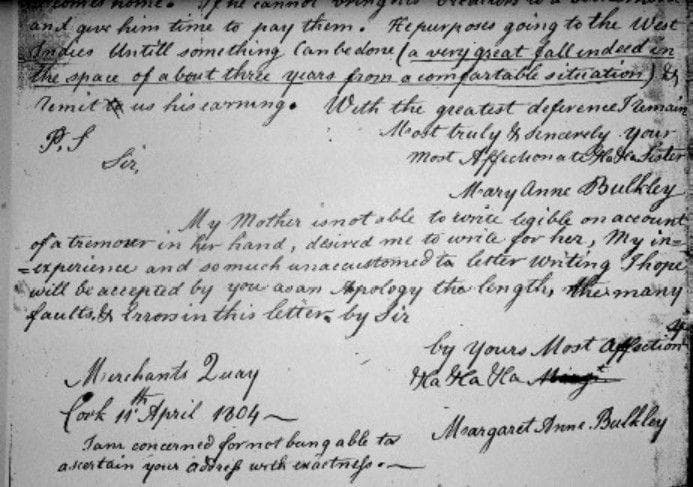 and give him time to pay them. He purposes going to the West
Indies Untill something Can be done (a very great fall indeed in
the space of about three years from a comfortable situation) &
remit to us his earning. With the greatest deference I remain
Most truly & Sincerely your
P.S
most Affectionate &a &a Sister
Sir,
Mary Anne Bulkley
My Mother is not able to write legible on account
of a tremour in her hand, desired me to write for her, My in=
=experience and so much unaccustomed to letter writing I hope
will be accepted by you as an Apology the length, the many
faults, & Errors in this letter. by Sir
by yours Most Affection
&a &a &a
Merchants Quay
Cork 11th April 1804
Margaret Anne Bulkley
I am concerned for not being able to
ascertain your address with exactness.